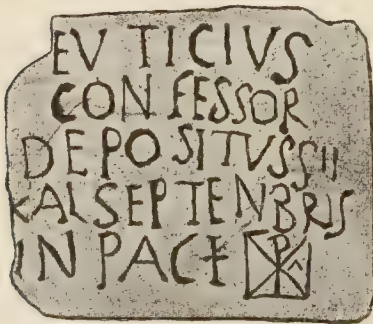 EVTICIVS
CONFESSOR
DEPOSITVSSII
KALSEPTENBRIS
IN PACE